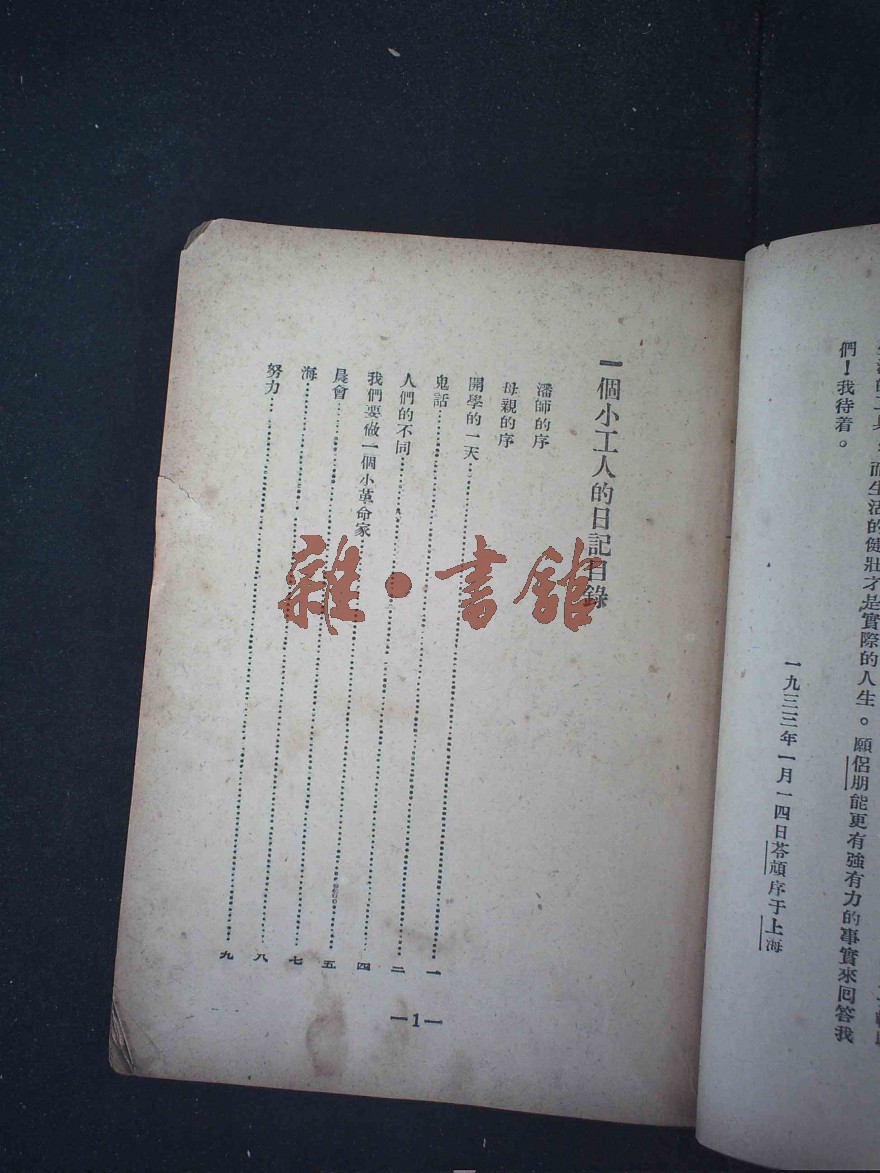 而生活的健壯才是實際的人生。願侶朋能更有強有力的事實來回答我
們！我待着。
一九三三年一月一四日苓頏序于上海
一個小工人的日記目錄
潘師的序
母親的序
開學的一天……一
鬼話……二
人們的不同……四
我們要做一個小革命家……五
晨會……七
海……八
努力……九
—1—
雜·書館